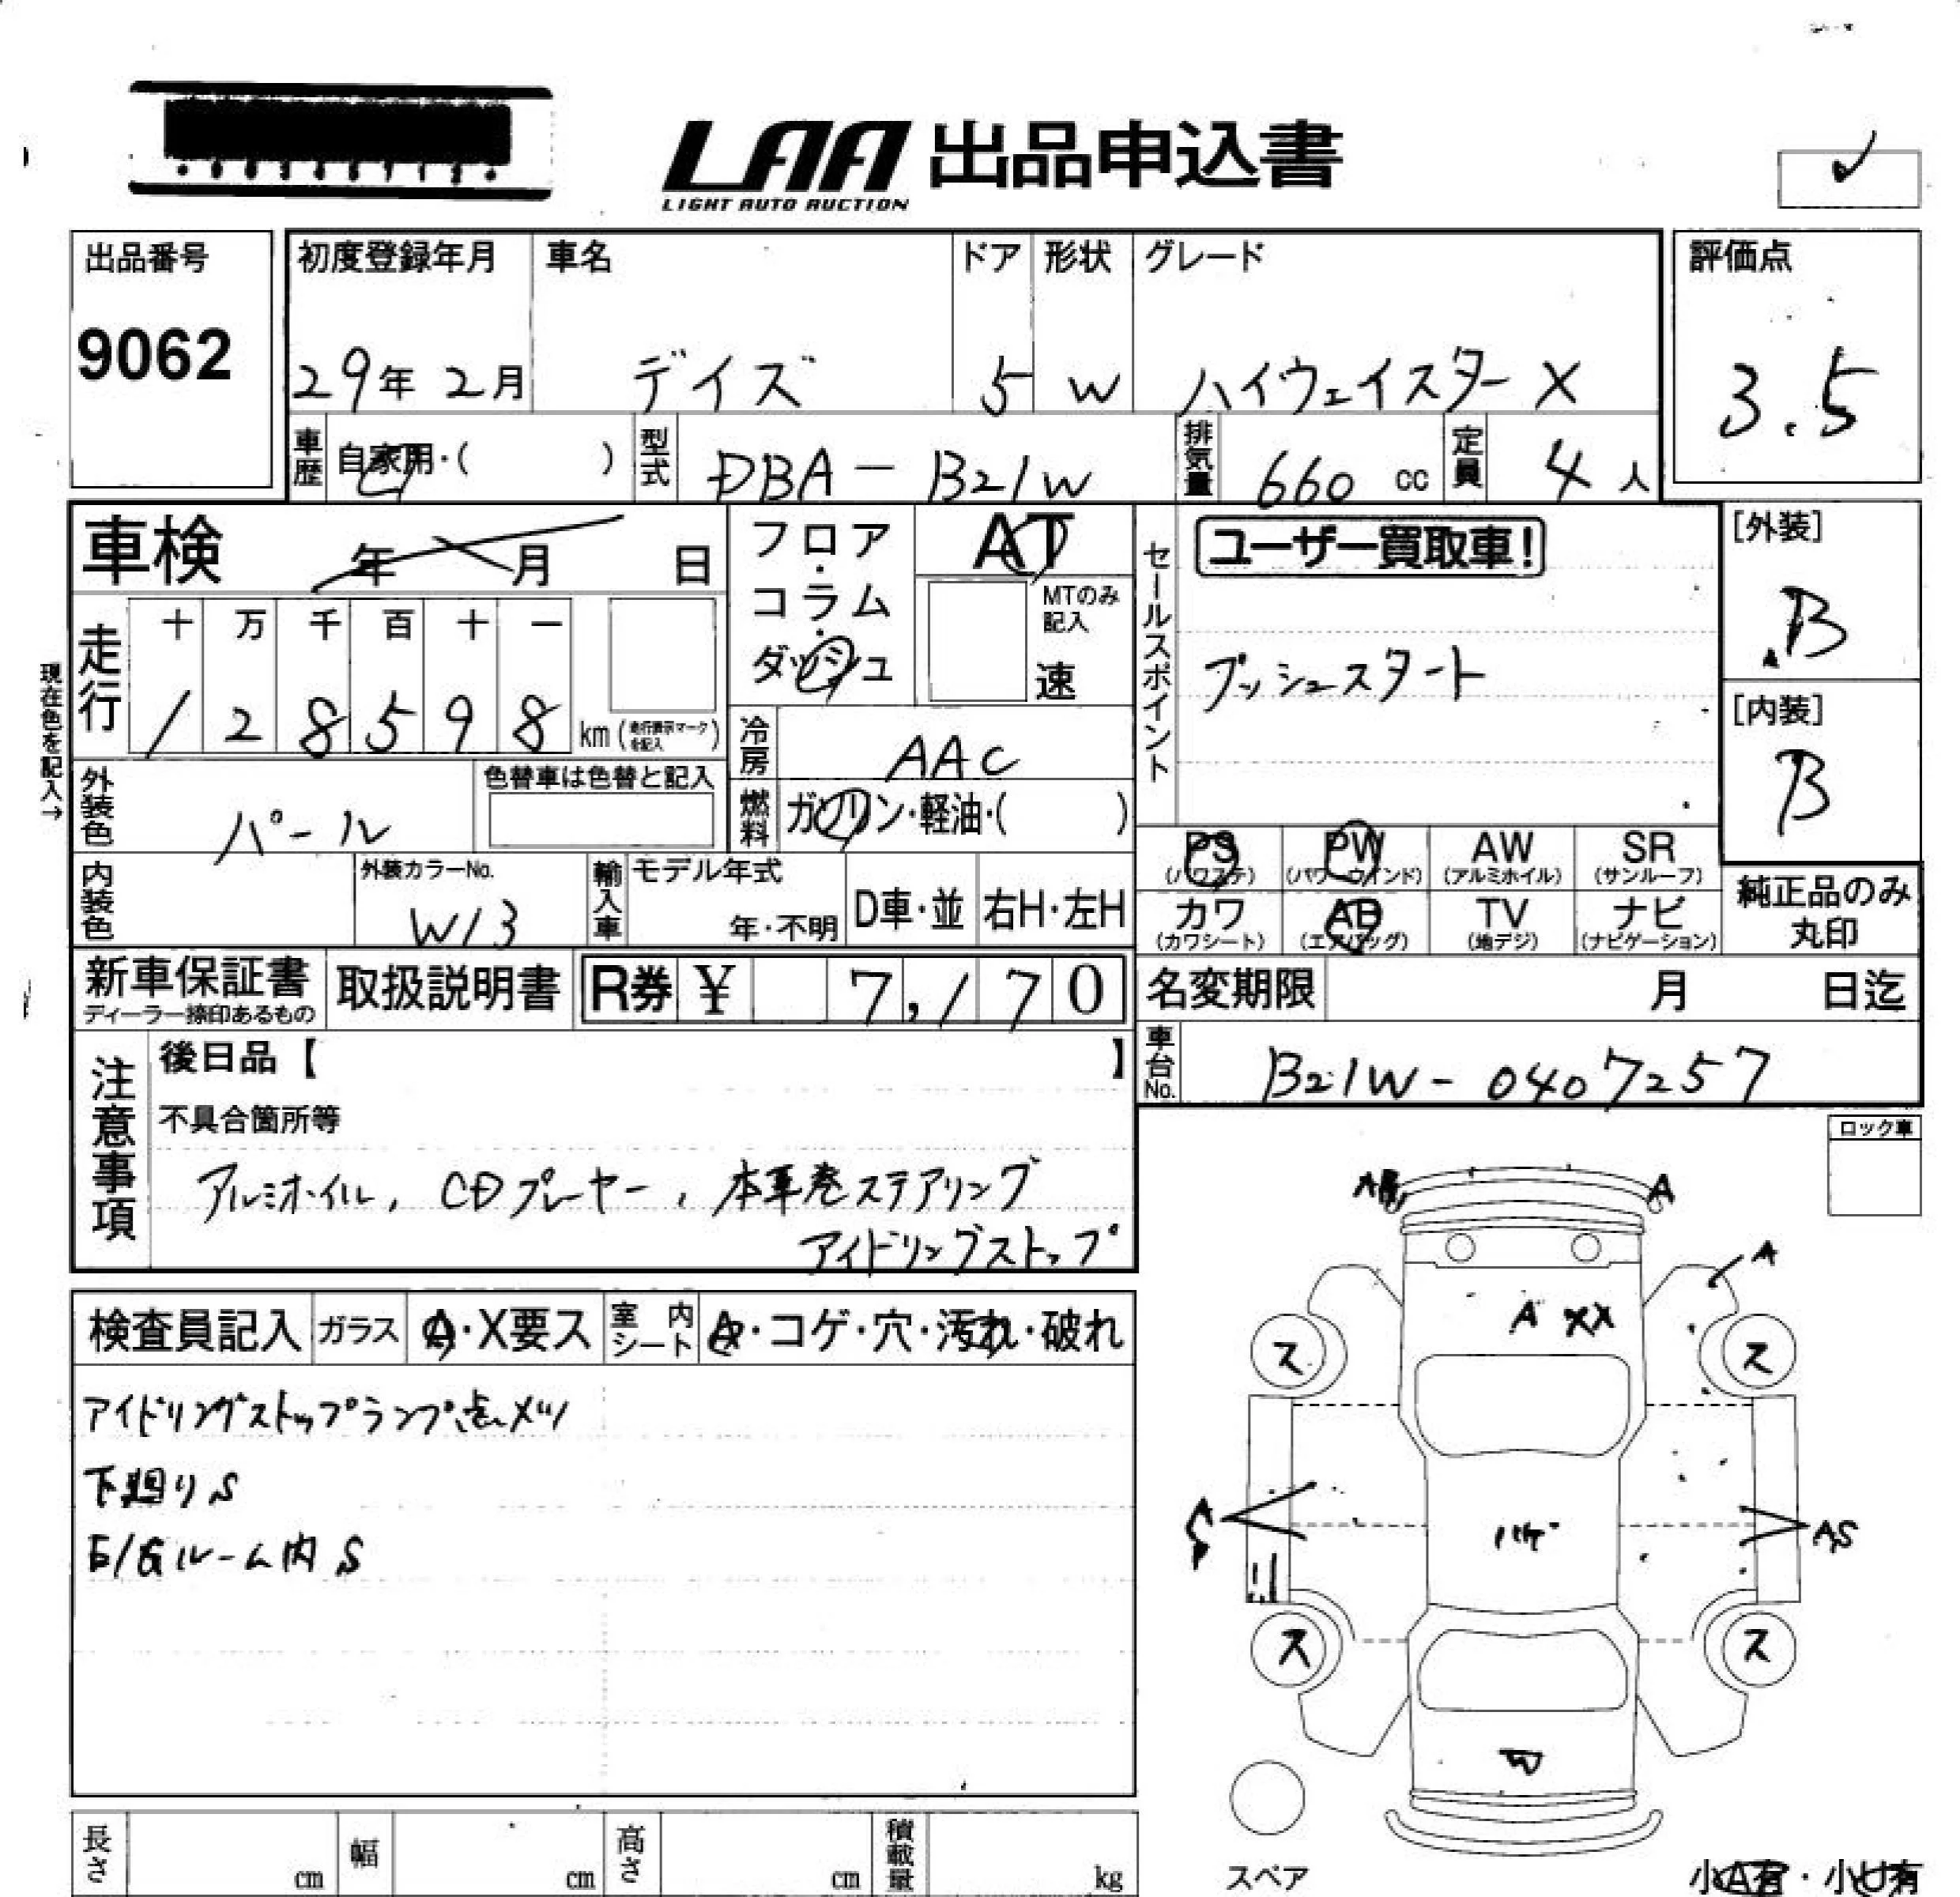 LAA 出品申込書
LIGHT AUTO AUCTION
出品番号
9062
初度登録年月
29年 2月
車名
デイズ
ドア
5
形状
W
グレード
ハイウェイスター X
評価点
3.5
車歴
自家用・( )
型式
DBA-B21W
排気量
660 cc
定員
4 人
車検
年 月 日
フロア・
コラム・
ダッシュ
AT
MTのみ
記入
速
セールスポイント
ユーザー買取車!
プッシュスタート
[外装]
B
[内装]
B
現在色を記入→
走行
十 万 千 百 十 一
1 2 8 5 9 8
km (走行表示マークを記入)
冷房
AAC
燃料
ガソリン・軽油・( )
外装色
パール
色替車は色替と記入
PS (パワステ)
PW (パワーウインド)
AW (アルミホイル)
SR (サンルーフ)
カワ (カワシート)
AB (エアバッグ)
TV (地デジ)
ナビ (ナビゲーション)
純正品のみ
丸印
内装色
外装カラーNo.
W13
輸入車
モデル年式
年・不明
D車・並
右H・左H
新車保証書
ディーラー捺印あるもの
取扱説明書
R券 ¥ 7,170
名変期限
月 日迄
車台No.
B21W-0407257
注意事項
後日品【 】
不具合箇所等
アルミホイル, CDプレーヤー, 本革巻ステアリング
アイドリングストップ
ロック車
検査員記入
ガラス
A・X要ス
室内シート
A・コゲ・穴・汚れ・破れ
アイドリングストップランプ点メツ
下廻りS
E/Gルーム内 S
A
A
A XX
ス
ス
A
S
ハゲ
AS
ス
ス
W
スペア
小A有・小U有
長さ
cm
幅
cm
高さ
cm
積載量
kg